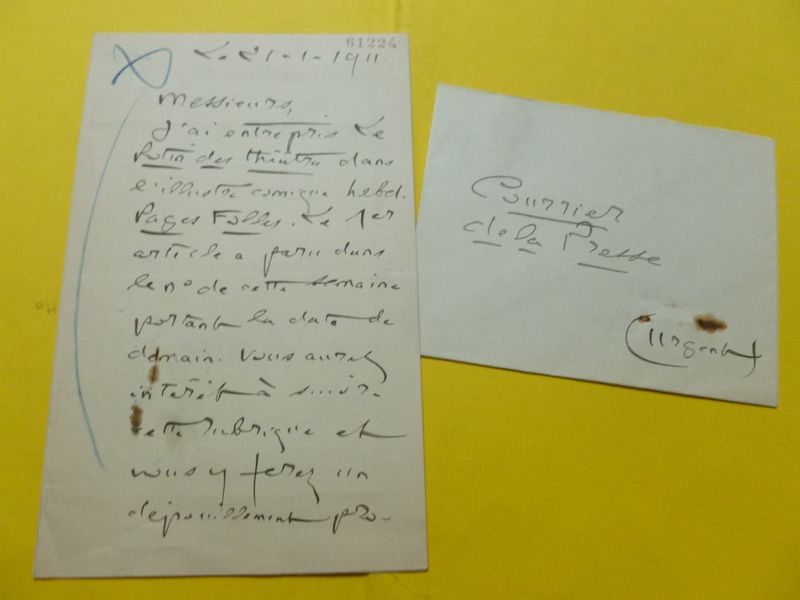 61224
Le 21-1-1911
Messieurs,
J'ai entrepris Le
Potin des théâtres dans
l'illustré comique hebd.
Pages Folles. Le 1er
article a paru dans
le n° de cette semaine
portant la date de
demain. Vous aurez
intérêt à suivre
cette rubrique et
vous y ferez un
dépouillement pro-
Courrier
de la Presse
(urgent)